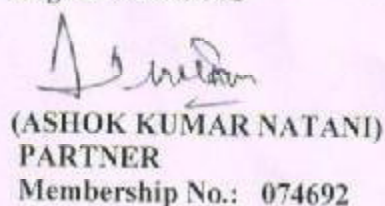 (ASHOK KUMAR NATANI)
PARTNER
Membership No.: 074692